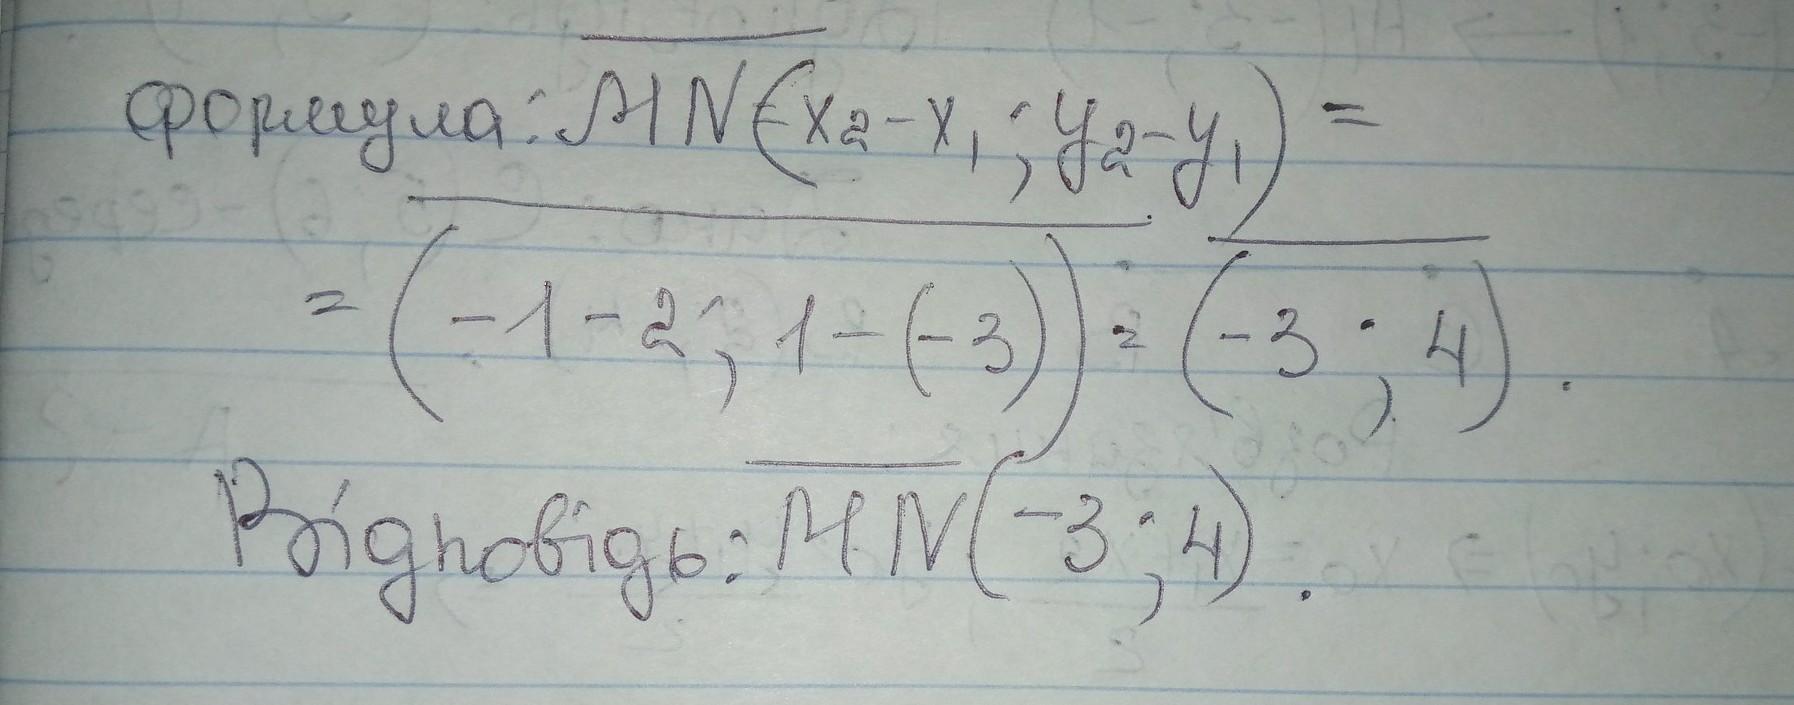 формула: MN(x₂-x₁; y₂-y₁) =
= (-1-2; 1-(-3)) = (-3; 4).
Відповідь: MN(-3; 4).